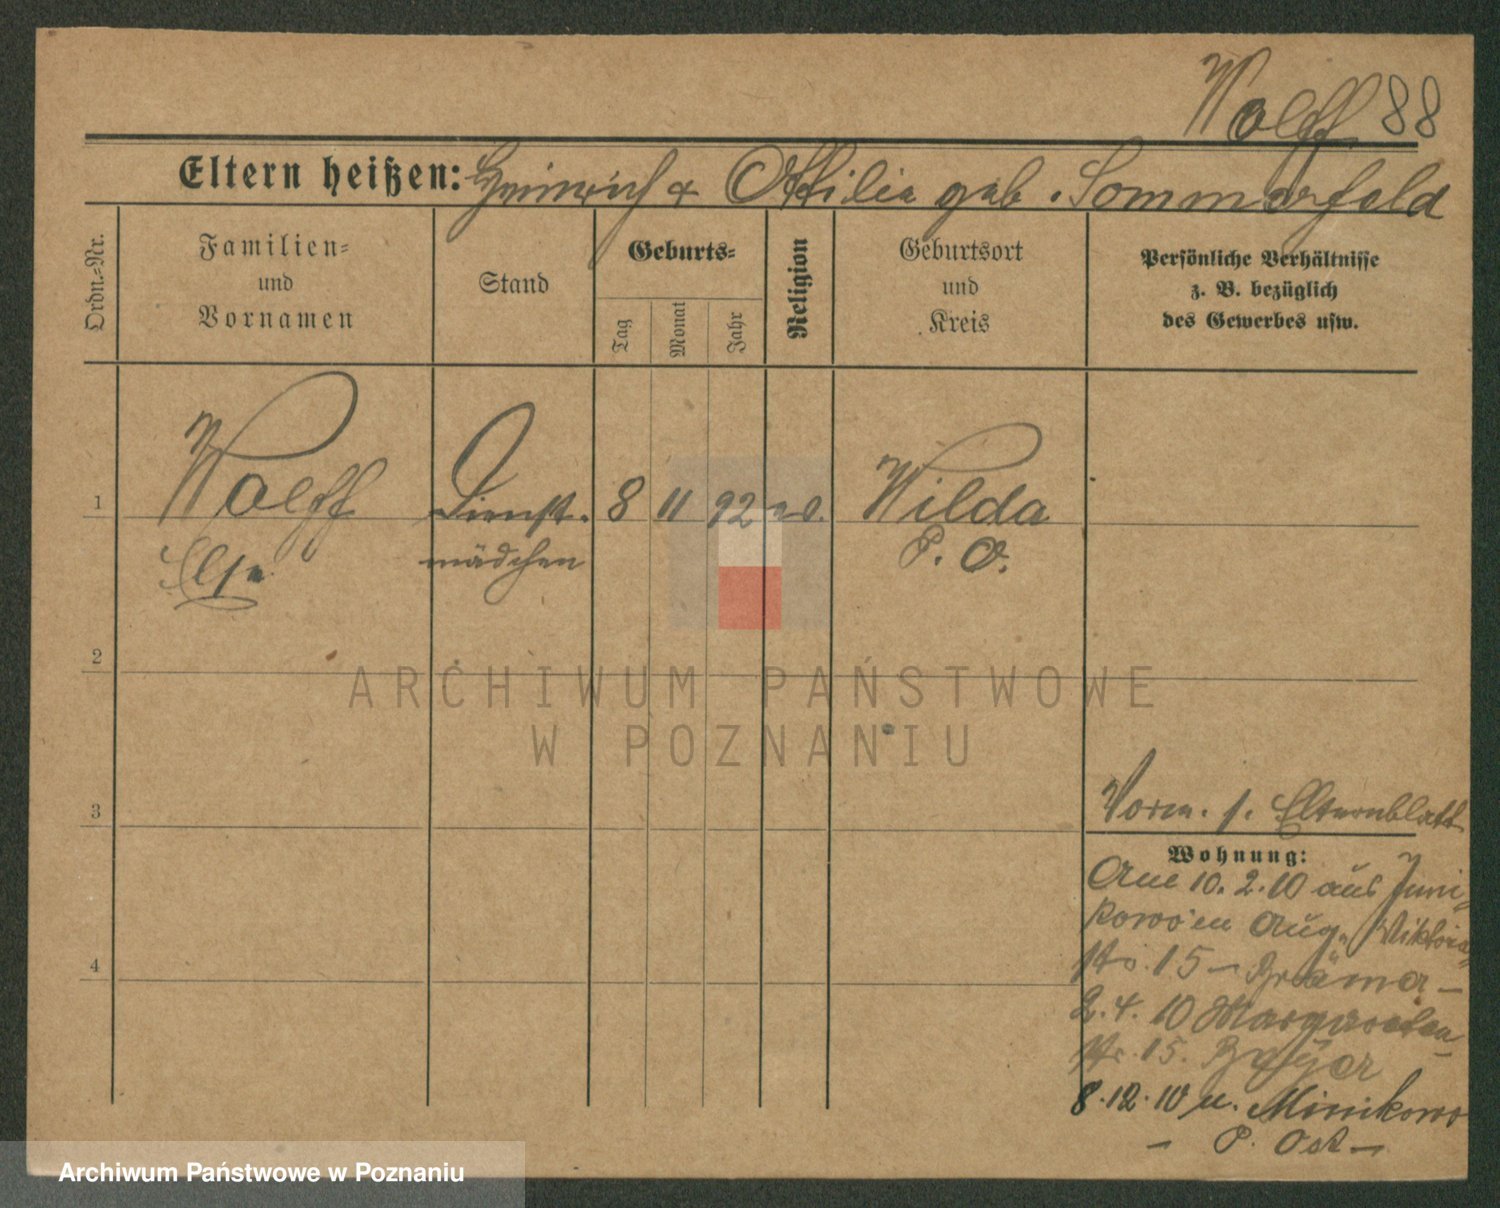 Wolff 88
Eltern heißen: Heinrich & Ottilie geb. Sommerfeld
Ordn.=Nr.
Familien=
und
Vornamen
Stand
Geburts=
Tag
Monat
Jahr
Religion
Geburtsort
und
Kreis
Persönliche Verhältnisse
z. B. bezüglich
des Gewerbes usw.
1
Wolff
Else
Dienst-
mädchen
8 11 92
Wilda
P. O.
2
ARCHIWUM PAŃSTWOWE
W POZNANIU
3
Vorm. s. Elternblatt
Wohnung:
Am 10. 2. 10 aus Juni-
kowo in Aug. Viktoria-
str. 15 – Krämer –
2. 4. 10 Margareten-
str. 15. Beyer
4
8. 12. 10 n. Minikowo
– P. Ost –
Archiwum Państwowe w Poznaniu